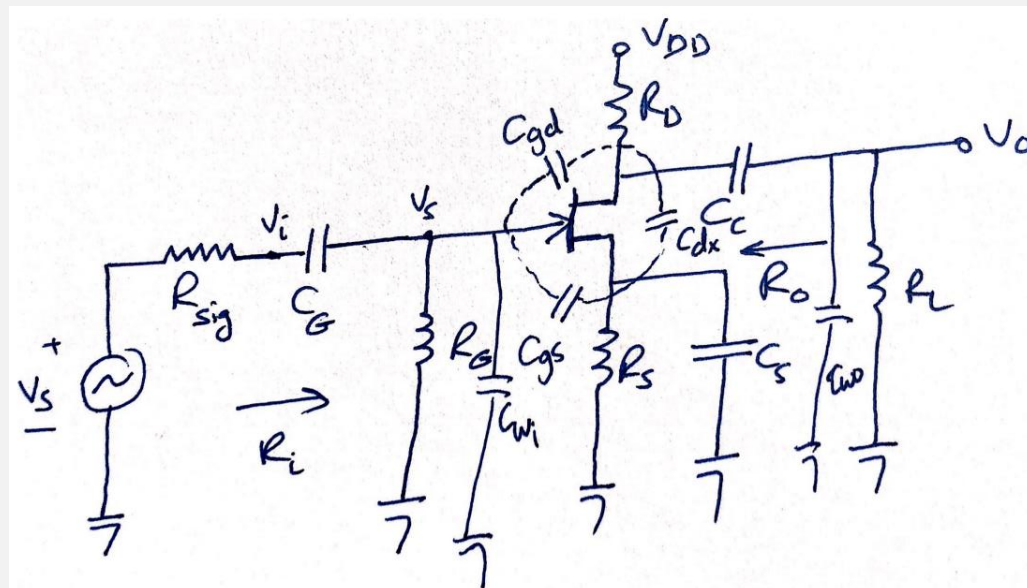 V_DD
R_D
C_gd
V_o
V_i
V_s
C_c
C_dx
R_sig
C_G
R_o
R_L
+
V_s
−
R_G
C_gs
R_S
C_s
C_wo
C_wi
R_i